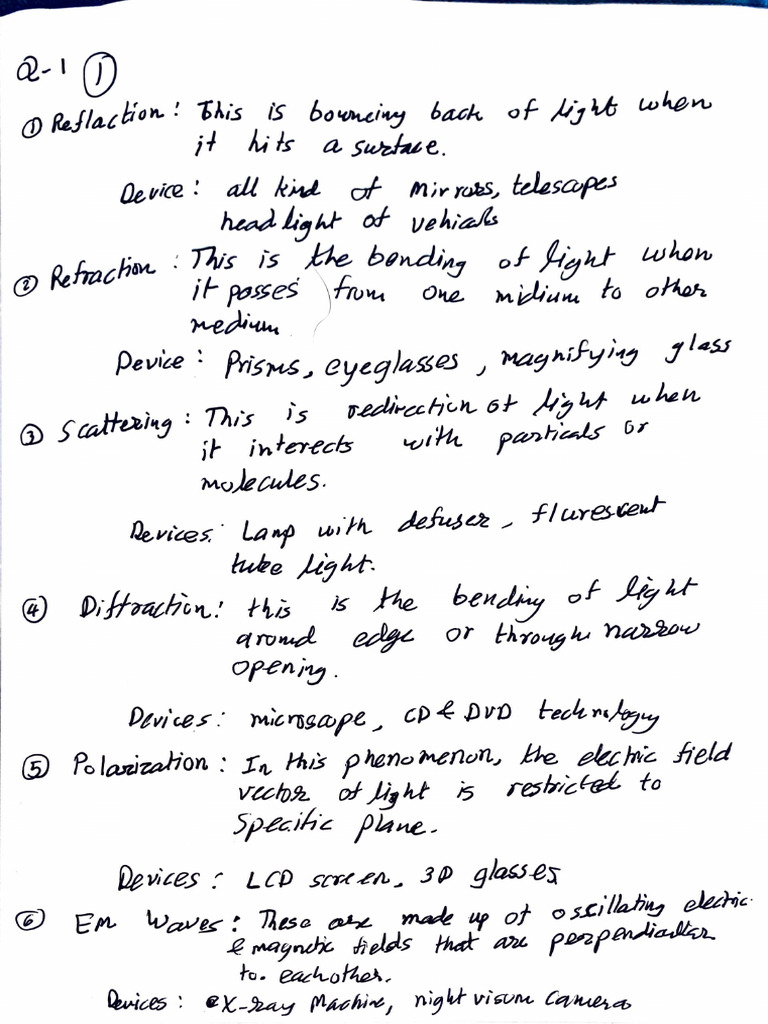 Q-1 ①
① Reflaction: This is bouncing back of light when
it hits a surface.
Device: all kind of mirrors, telescapes
head light of vehicals
② Refraction: This is the bending of light when
it passes from one midium to other
medium.
Device: Prisms, eyeglasses, magnifying glass
③ Scattering: This is redirection of light when
it interects with particals or
molecules.
Devices: Lamp with defuser, flurescent
tube light.
④ Diffraction: this is the bending of light
around edge or through narrow
opening.
Devices: microscope, CD & DVD technology
⑤ Polarization: In this phenomenon, the electric field
vector of light is restricted to
specific plane.
Devices: LCD screen, 3D glasses
⑥ EM Waves: These are made up of ossillating electric
& magnetic fields that are perpendicular
to eachother.
Devices: X-ray Machine, night visum camera